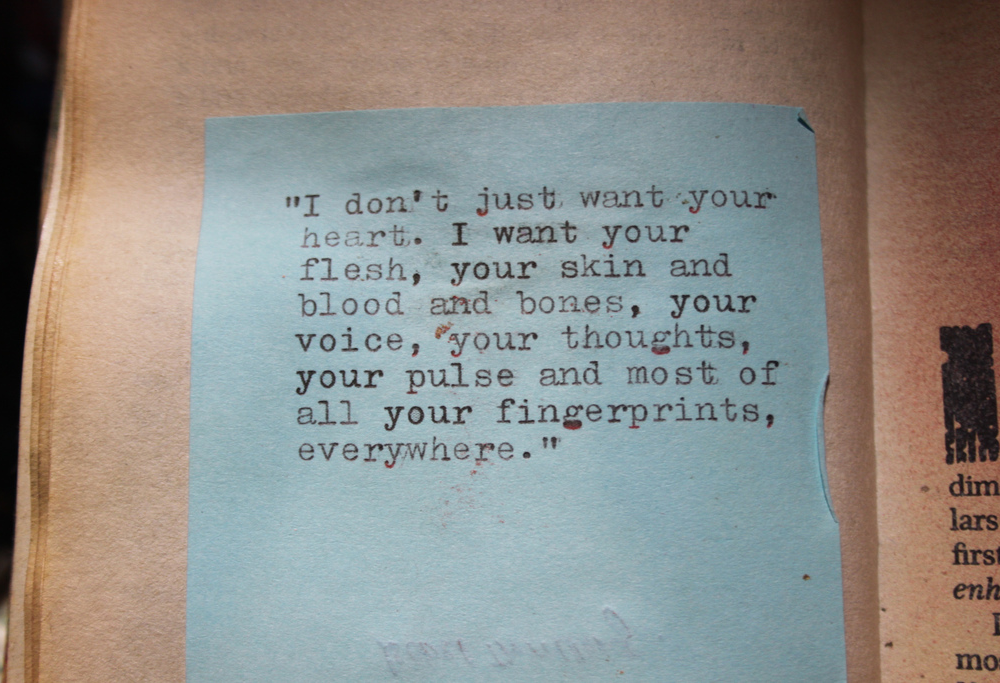 "I don't just want your
heart. I want your
flesh, your skin and
blood and bones, your
voice, your thoughts,
your pulse and most of
all your fingerprints,
everywhere."
dim
lars
first
enh
mo